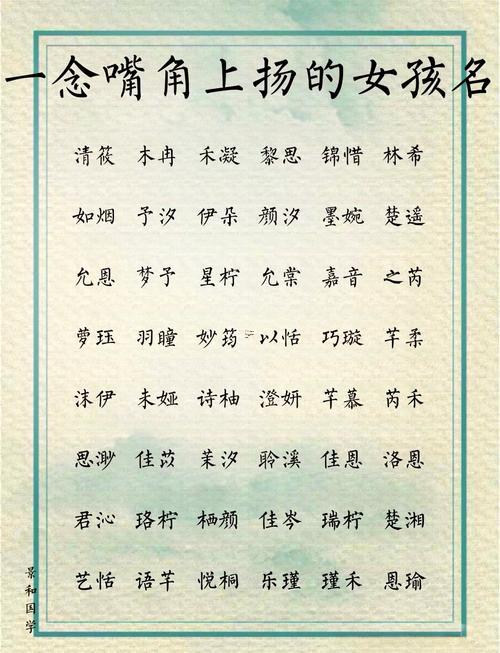 一念嘴角上扬的女孩名
清筱 木冉 禾凝 黎思 锦惜 林希
如烟 予汐 伊朵 颜汐 墨婉 楚遥
允恩 梦予 星柠 允棠 嘉音 之芮
萝珏 羽瞳 妙筠 以恬 巧璇 芊柔
沫伊 未娅 诗柚 澄妍 芊慕 芮禾
思渺 佳苡 茉汐 聆溪 佳恩 洛恩
君沁 珞柠 栖颜 佳岑 瑞柠 楚湘
艺恬 语芊 悦桐 乐瑾 瑾禾 恩瑜
景和国学